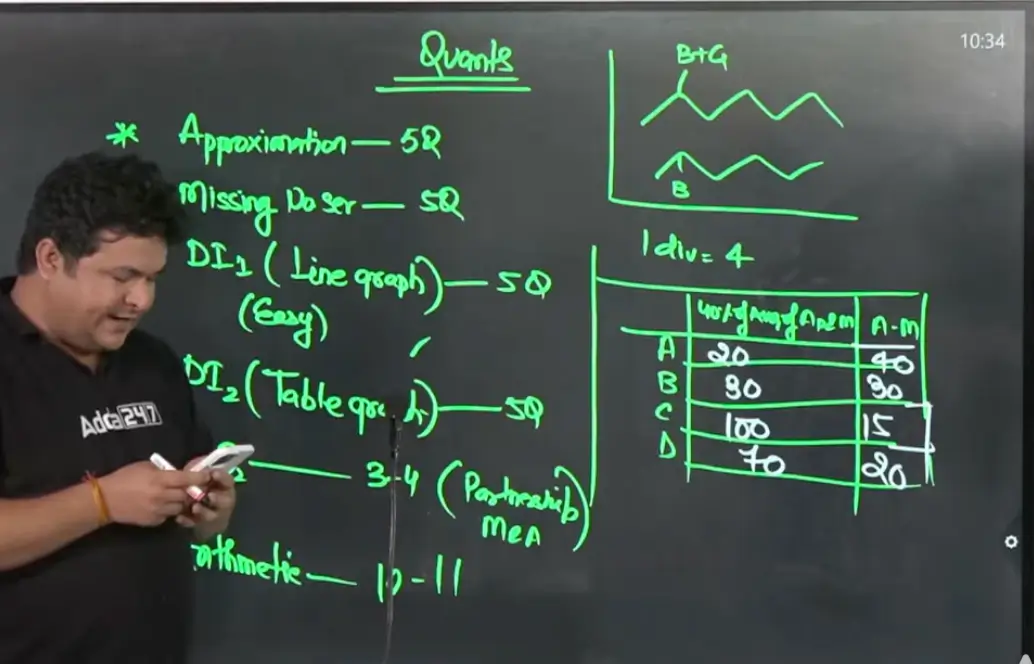 10:34
Quants
* Approximation — 5Q
Missing No Ser — 5Q
DI1 (Line graph) — 5Q
(Easy)
DI2 (Table gra h) — 5Q
Q2 — 3-4 (Partnership
M&A)
rithmetic — 10-11
Adda247
B+G
B
1 div = 4
40% of Avg of A & M A-M
A 20 40
B 30 30
C 100 15
D 70 20